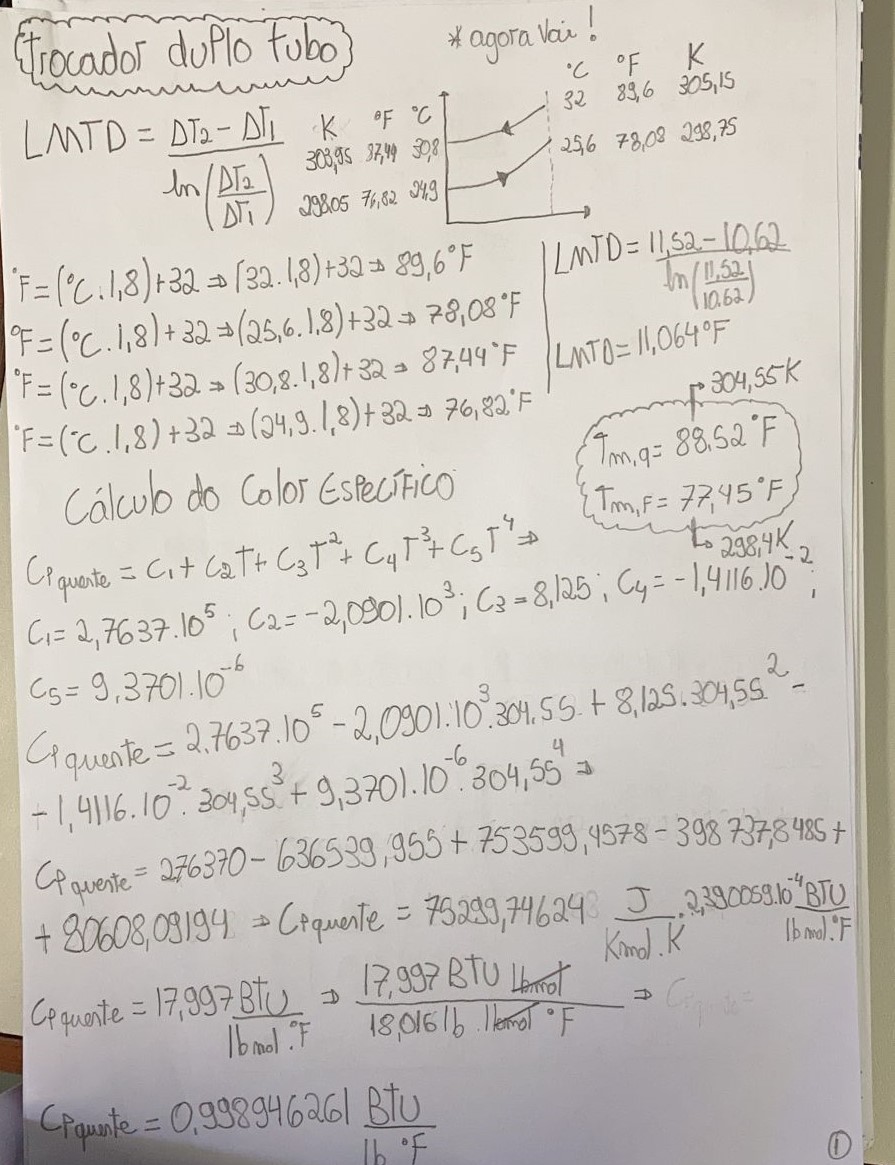 Trocador duplo tubo
* agora vai!
°C °F K
32 89,6 305,15
25,6 78,08 298,75
K °F °C
303,95 87,44 30,8
298,05 76,82 24,9
LMTD = (ΔT2 - ΔT1) / ln(ΔT2/ΔT1)
°F = (°C . 1,8) + 32 ⇒ (32 . 1,8) + 32 ⇒ 89,6°F
°F = (°C . 1,8) + 32 ⇒ (25,6 . 1,8) + 32 ⇒ 78,08°F
°F = (°C . 1,8) + 32 ⇒ (30,8 . 1,8) + 32 ⇒ 87,44°F
°F = (°C . 1,8) + 32 ⇒ (24,9 . 1,8) + 32 ⇒ 76,82°F
LMTD = (11,52 - 10,62) / ln(11,52/10,62)
LMTD = 11,064°F
304,55K
Tm,q = 88,52°F
Tm,F = 77,45°F
298,4K
Cálculo do Calor Específico
Cp quente = C1 + C2T + C3T² + C4T³ + C5T⁴ ⇒
C1 = 2,7637.10⁵ ; C2 = -2,0901.10³ ; C3 = 8,125 ; C4 = -1,4116.10⁻² ;
C5 = 9,3701.10⁻⁶
Cp quente = 2,7637.10⁵ - 2,0901.10³.304,55 + 8,125.304,55² -
- 1,4116.10⁻².304,55³ + 9,3701.10⁻⁶.304,55⁴ ⇒
Cp quente = 276370 - 636539,955 + 753599,4578 - 398737,8485 +
+ 80608,09194 ⇒ Cp quente = 75299,74624 J/Kmol.K . 2,390059.10⁻⁴ BTU/lbmol.°F
Cp quente = 17,997 BTU/lbmol.°F ⇒ 17,997 BTU lbmol / 18,016 lb . lbmol °F ⇒
Cp quente = 0,998946261 BTU/lb °F
1